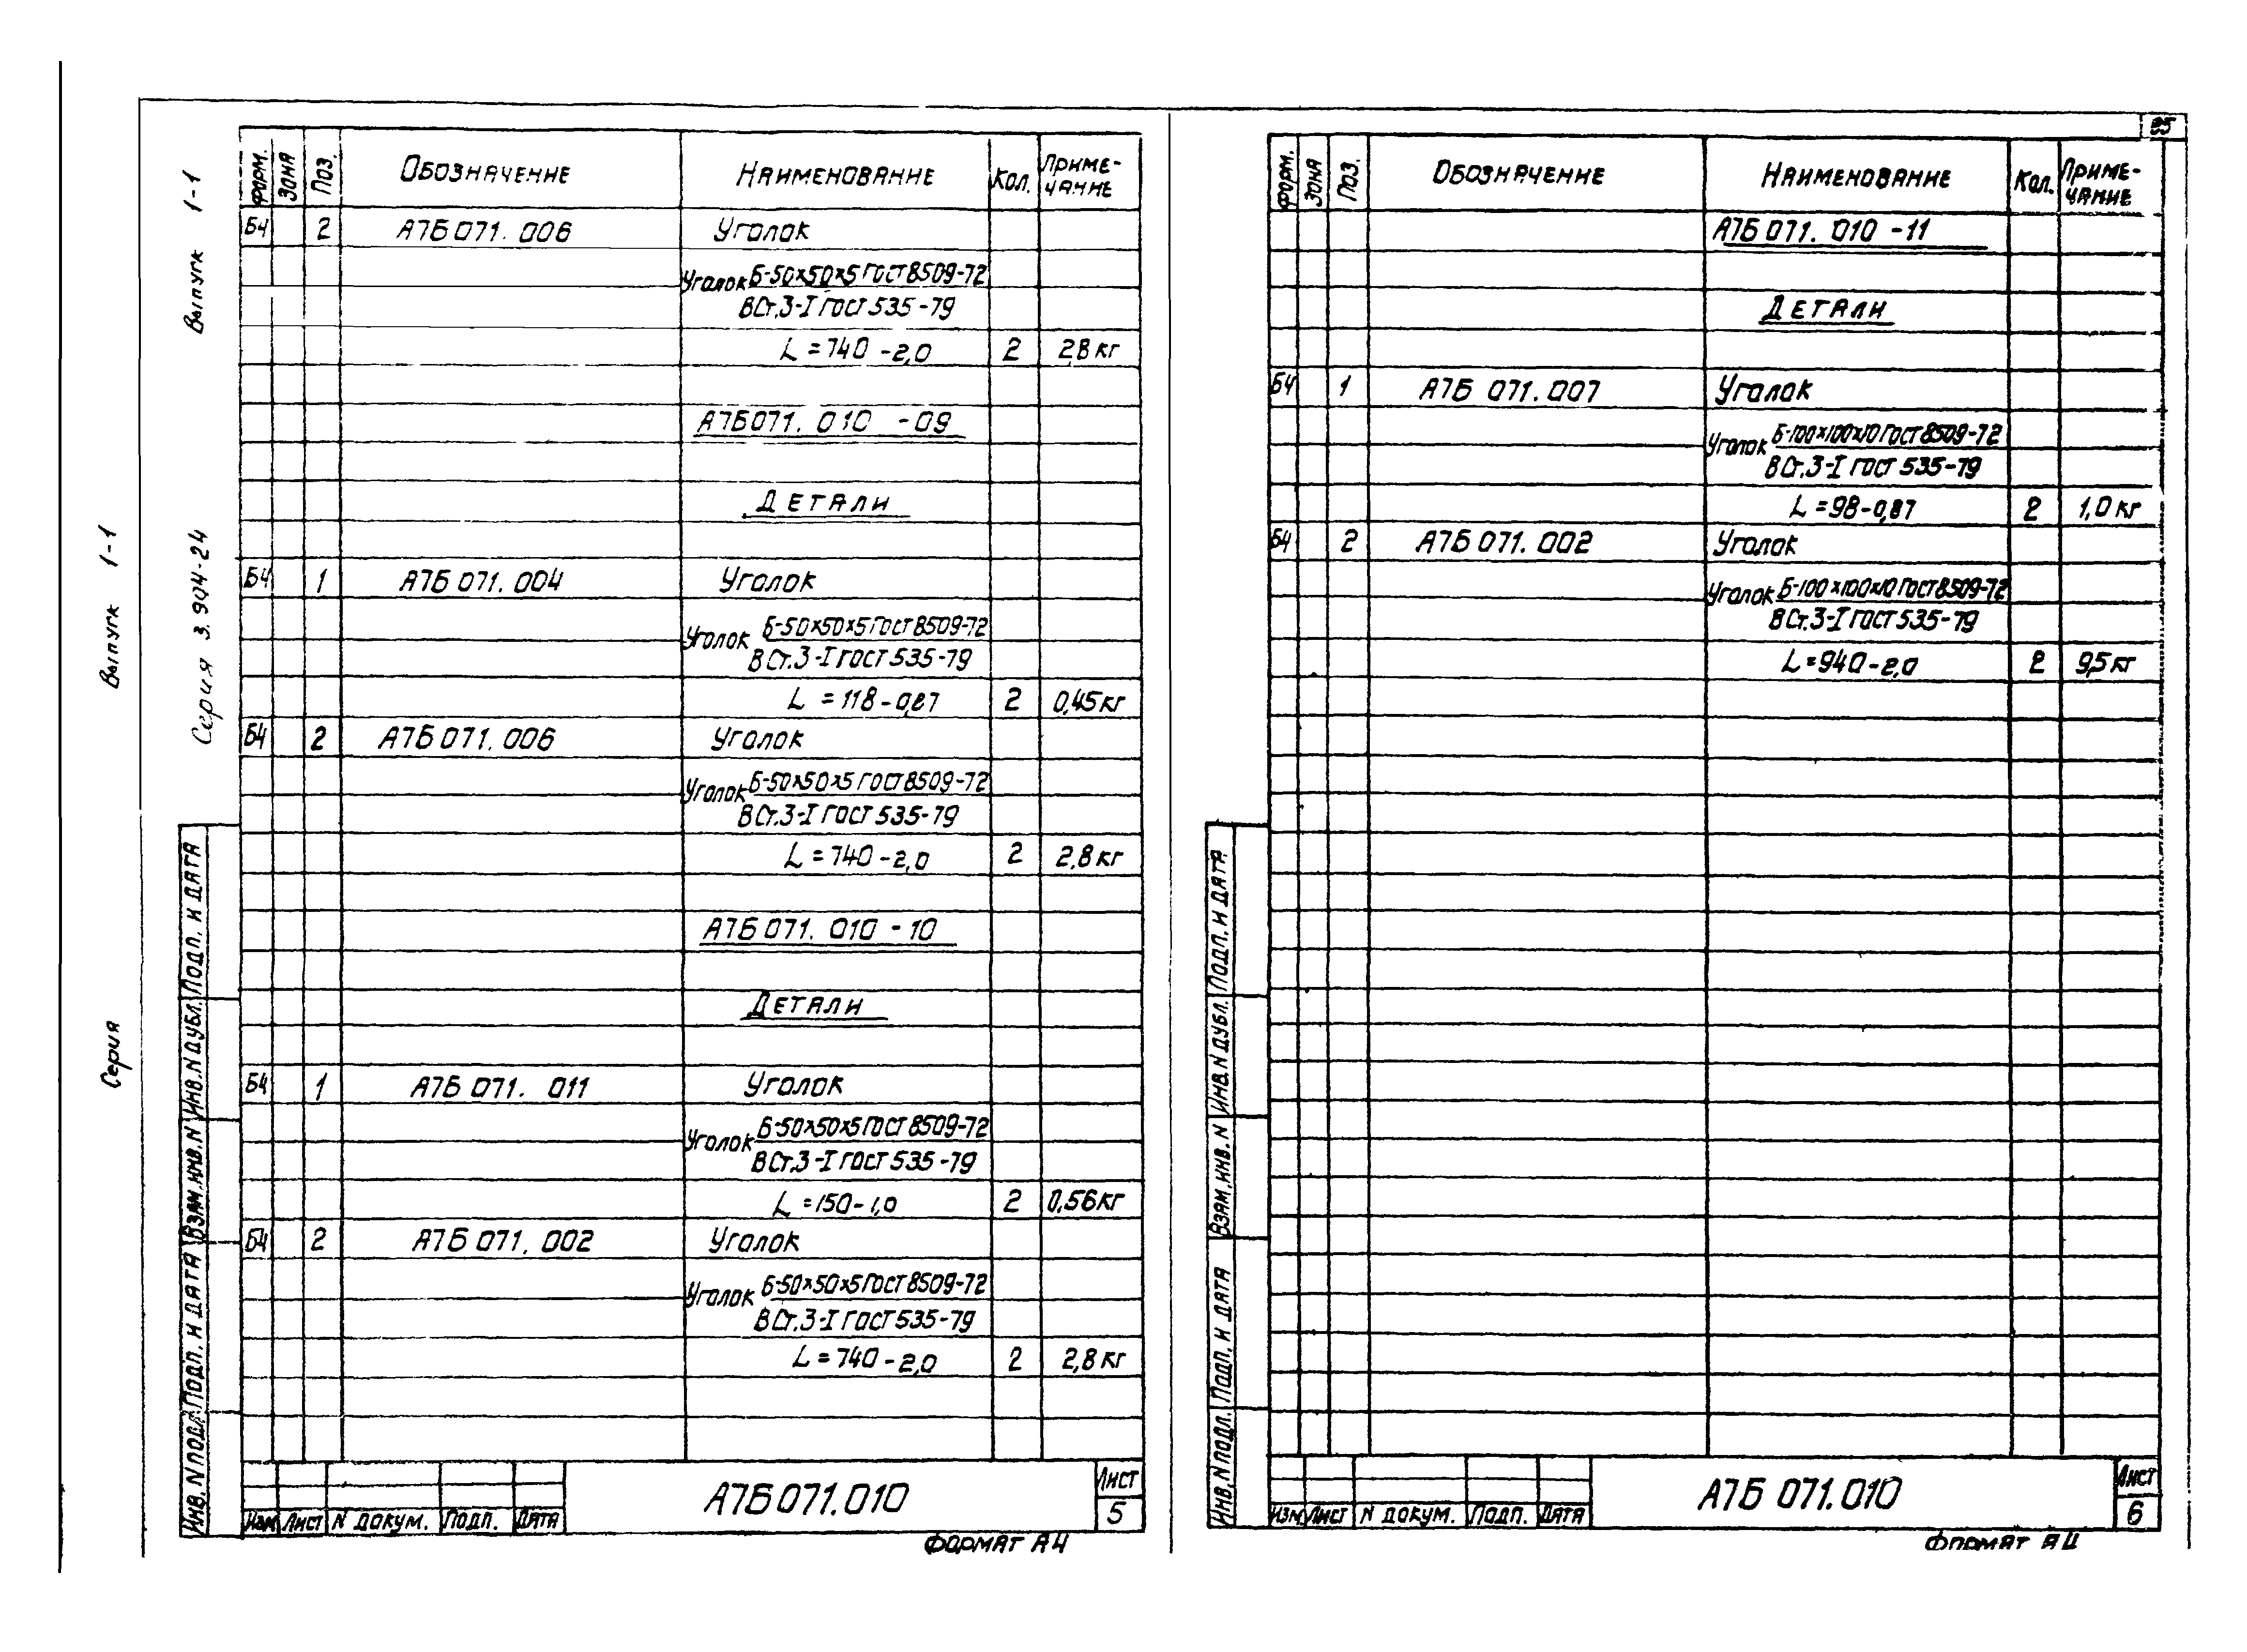 Серия Выпуск 1-1
Серия 3.904-24 Выпуск 1-1
Форм. Зона Поз. Обозначение Наименование Кол. Примечание
Б4 2 А7Б 071. 006 Уголок
Уголок Б-50×50×5 ГОСТ 8509-72
ВСт.3-I ГОСТ 535-79
L = 740 - 2,0 2 2,8 кг
А7Б 071. 010 - 09
Детали
Б4 1 А7Б 071. 004 Уголок
Уголок Б-50×50×5 ГОСТ 8509-72
ВСт.3-I ГОСТ 535-79
L = 118 - 0,87 2 0,45 кг
Б4 2 А7Б 071. 006 Уголок
Уголок Б-50×50×5 ГОСТ 8509-72
ВСт.3-I ГОСТ 535-79
L = 740 - 2,0 2 2,8 кг
А7Б 071. 010 - 10
Детали
Б4 1 А7Б 071. 011 Уголок
Уголок Б-50×50×5 ГОСТ 8509-72
ВСт.3-I ГОСТ 535-79
L = 150 - 1,0 2 0,56 кг
Б4 2 А7Б 071. 002 Уголок
Уголок Б-50×50×5 ГОСТ 8509-72
ВСт.3-I ГОСТ 535-79
L = 740 - 2,0 2 2,8 кг
Инв. N подл. Подп. и дата Взам. инв. N Инв. N дубл. Подп. и дата
Изм Лист N докум. Подп. Дата
А7Б 071.010
Лист
5
Формат А4
Форм. Зона Поз. Обозначение Наименование Кол. Примечание
А7Б 071. 010 - 11
Детали
Б4 1 А7Б 071. 007 Уголок
Уголок Б-100×100×10 ГОСТ 8509-72
ВСт.3-I ГОСТ 535-79
L = 98 - 0,87 2 1,0 кг
Б4 2 А7Б 071. 002 Уголок
Уголок Б-100×100×10 ГОСТ 8509-72
ВСт.3-I ГОСТ 535-79
L = 940 - 2,0 2 9,5 кг
Инв. N подл. Подп. и дата Взам. инв. N Инв. N дубл. Подп. и дата
Изм Лист N докум. Подп. Дата
А7Б 071.010
Лист
6
Формат А4